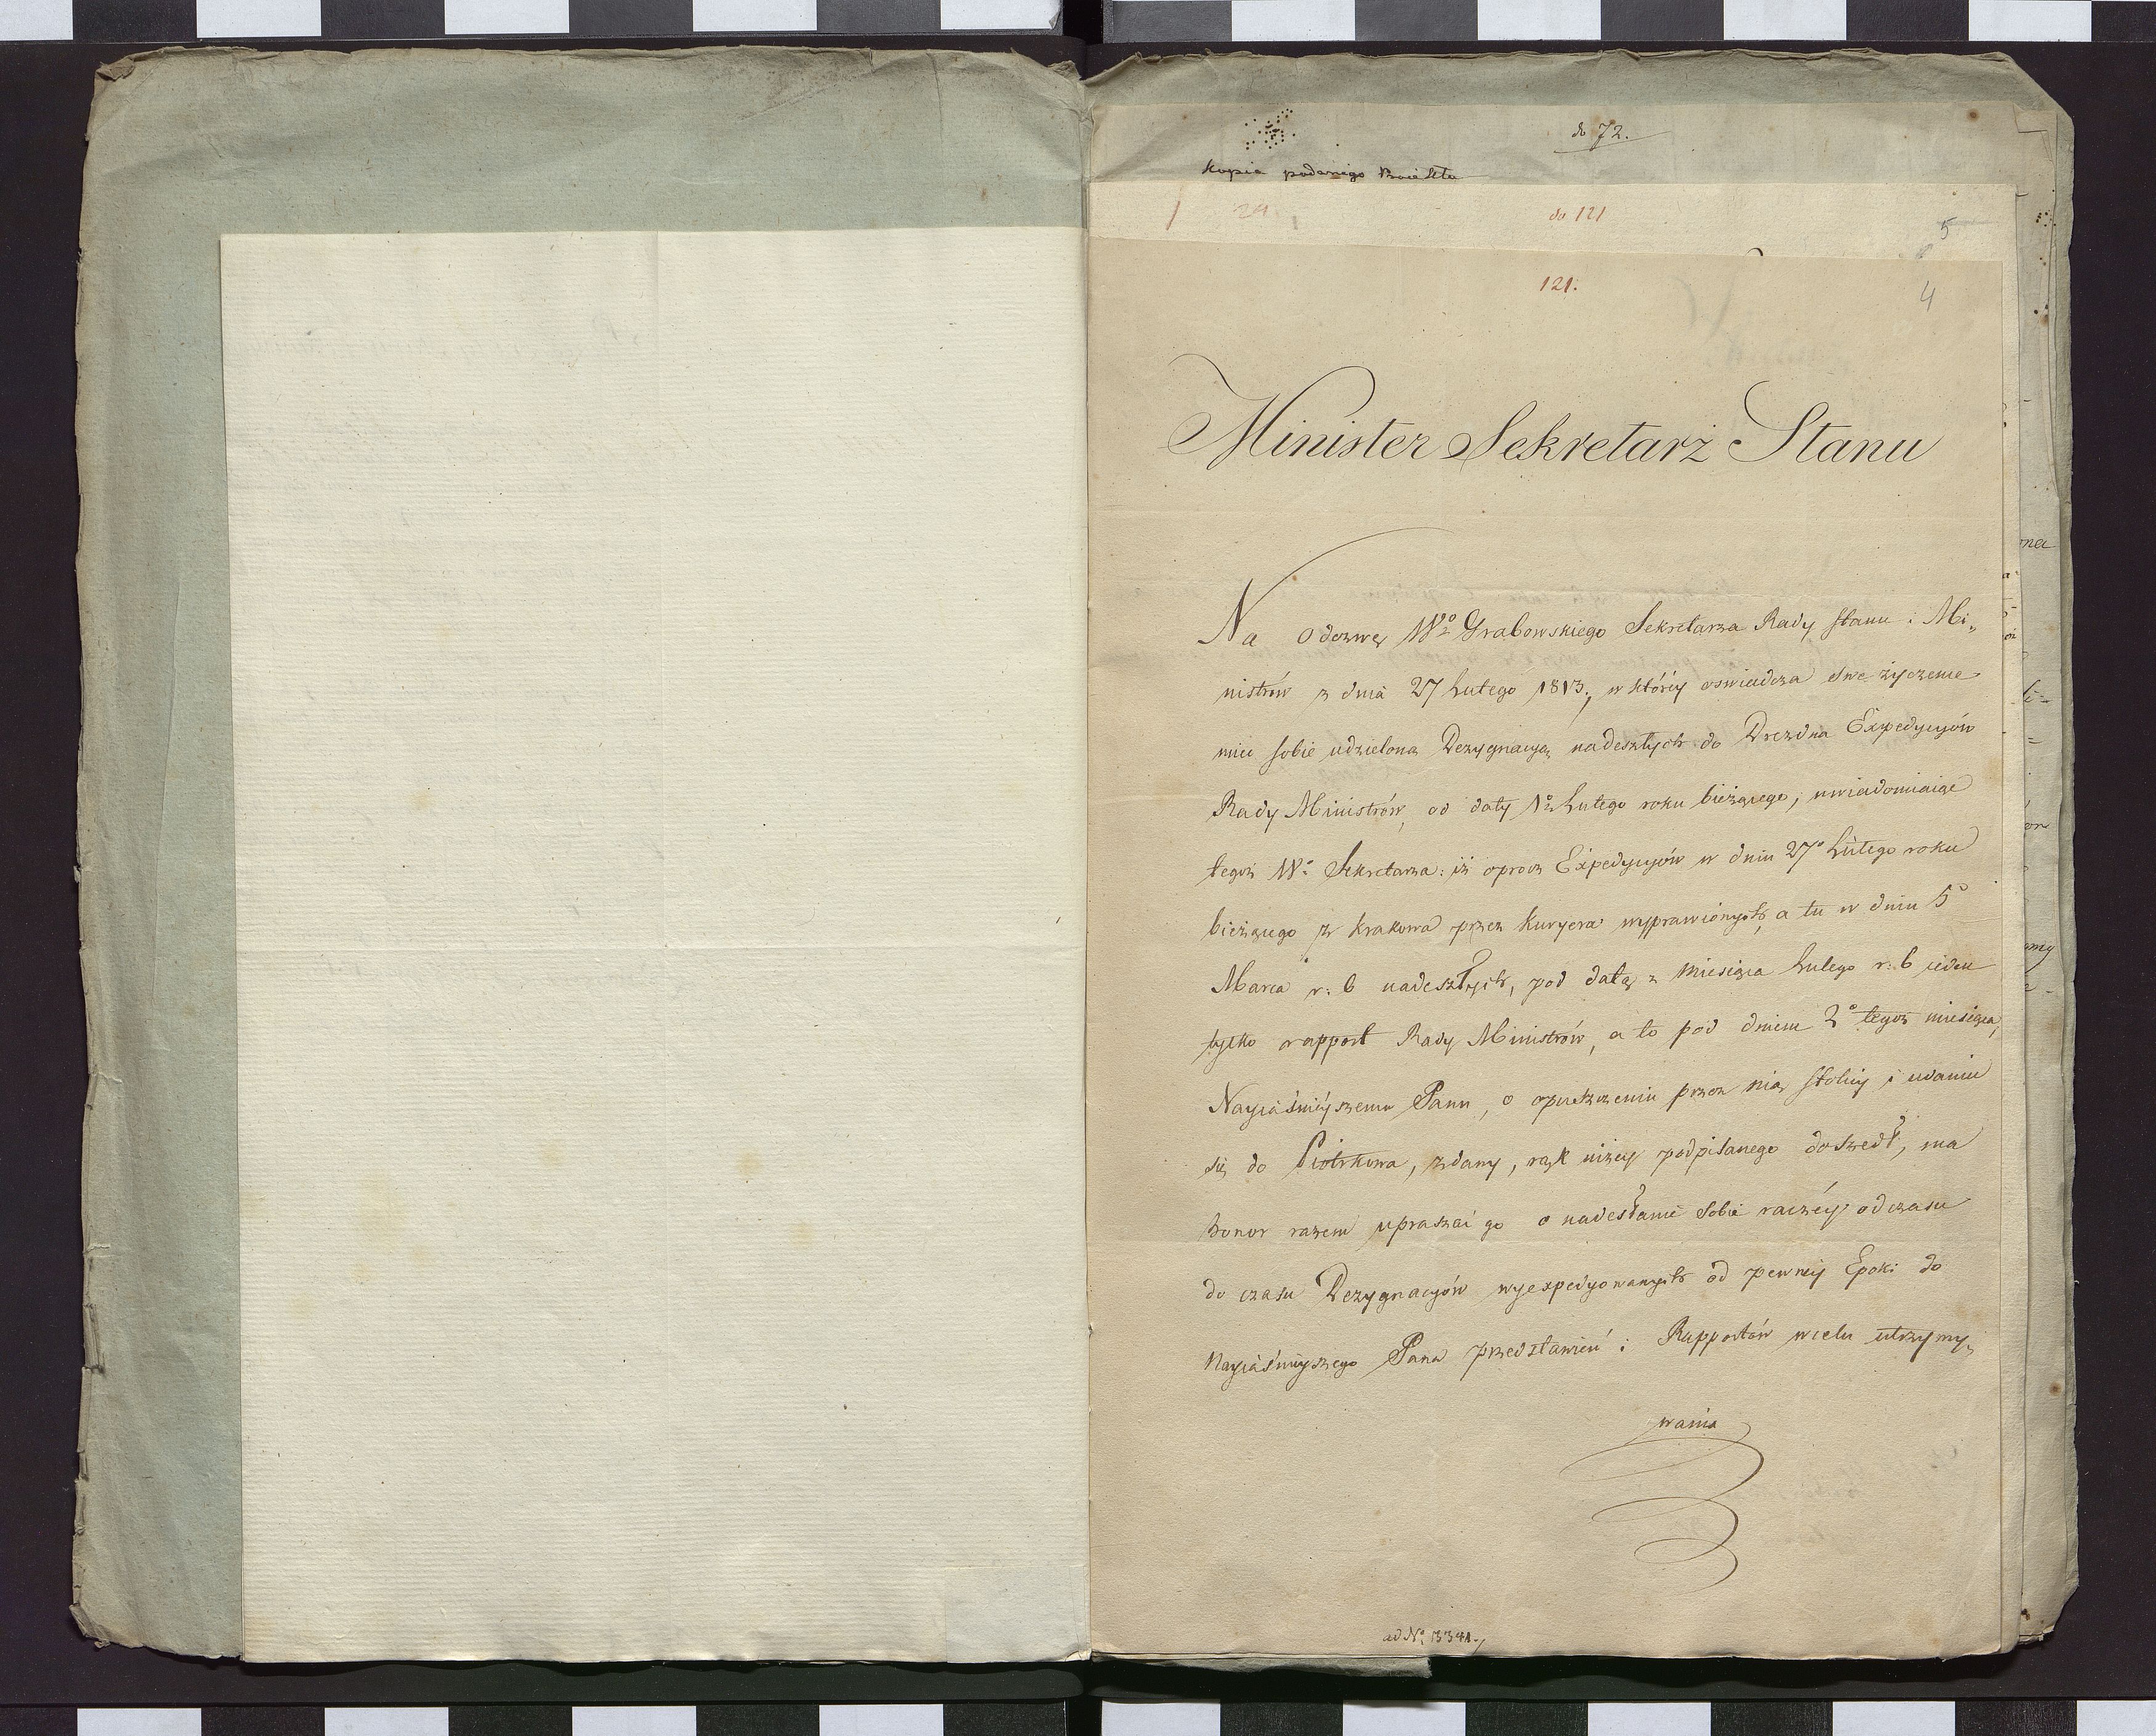 do 72.
Kopia podanego
do 121
5
121.
4
Minister Sekretarz Stanu
Na odezwę Wgo Grabowskiego Sekretarza Rady Stanu i Mi„
nistrów z dnia 27 Lutego 1813., w któréy oswiadcza swe życzenie
mieć sobie udzieloną Dezygnacyą nadeszłych do Drezdna Expedycyów
Rady Ministrów, od daty 1go Lutego roku bieżącego; uwiadomiaiąc
tegoż Wo Sekretarza: iż oprocz Expedycyów w dniu 27o Lutego roku
bieżącego z Krakowa przez Kuryera wyprawionych, a tu w dniu 5o
Marca r: b nadeszłych, pod datą z miesiąca Lutego r: b ieden
tylko rapport Rady Ministrów, a to pod dniem 2o tegoż miesiąca,
Nayiaśniéyszemu Panu, o opuszczeniu przez nią stolicy i udaniu
się do Piotrkowa, zdany, rąk niżey podpisanego doszedł, ma
honor razem upraszać go o nadesłanie sobie raczéy od czasu
do czasu Dezygnacyów wyexpedyowanych od pewnéy Epoki do
Nayiaśnieyszego Pana przedstawień i Rapportów wielu utrzymy„
wania
ad No. 3341.